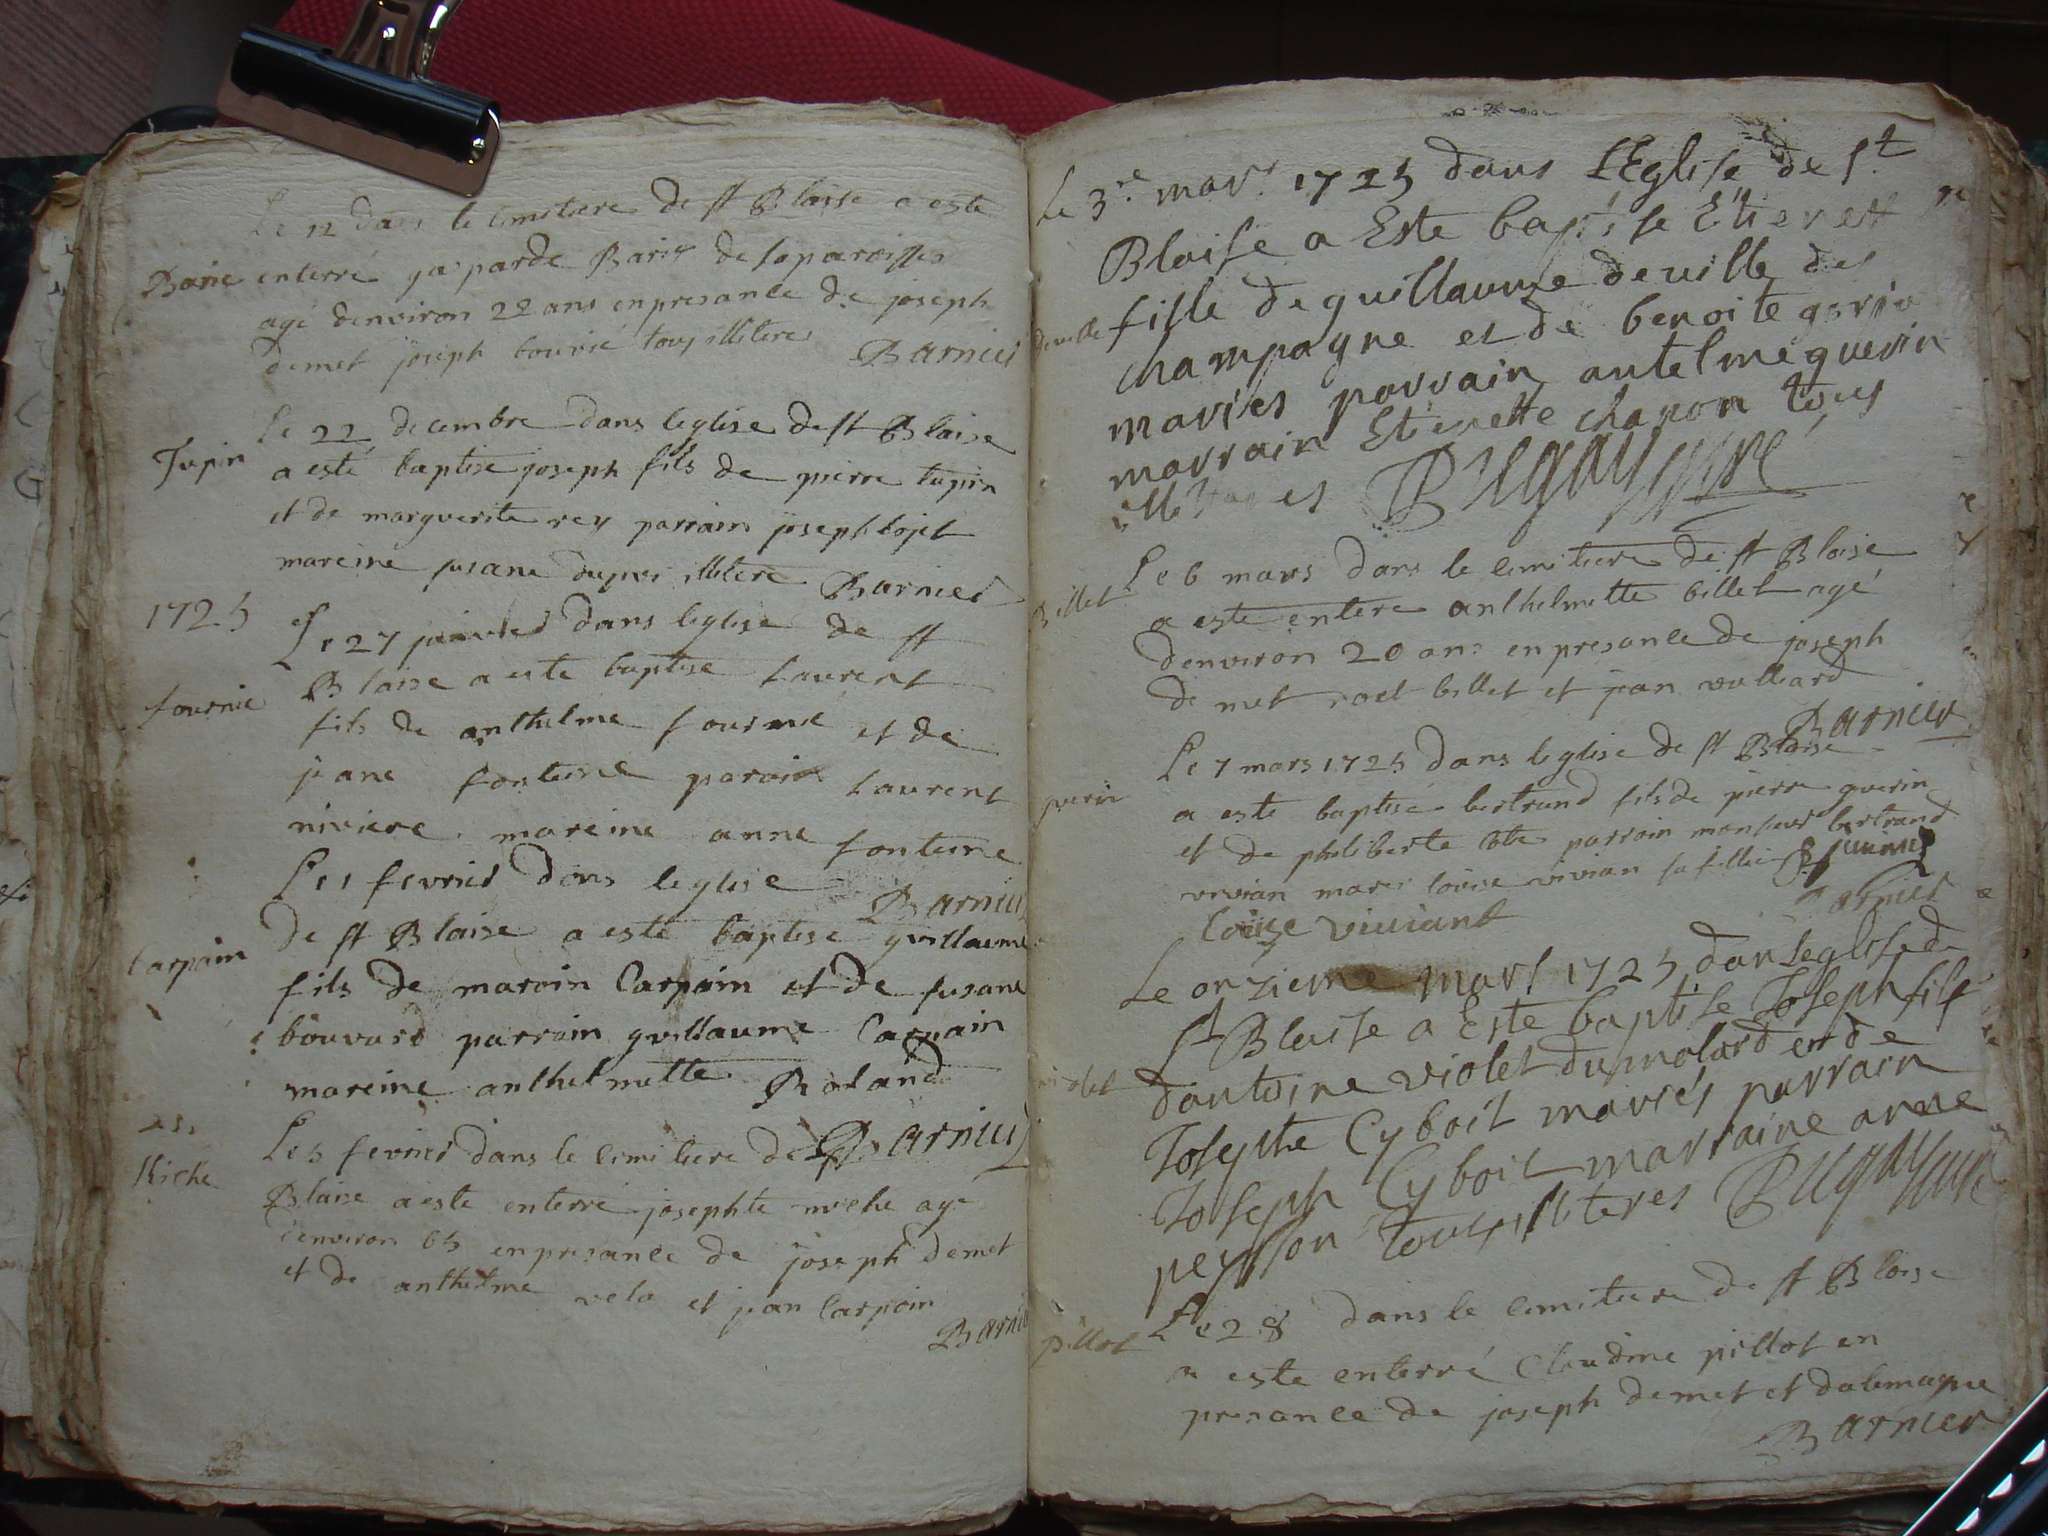 Le 12 dans le cimitiere de st Blaise a este
Barie enterré gasparde Barie de la paroisse
agé denviron 22 ans en presance de joseph
demet joseph bouvié tous illiteres Barnier
Le 22 decembre dans leglise de st Blaise
Tupin a esté baptise joseph fils de pierre tupin
et de marguerite rey parrain joseph
mareine susane dupui illitere Barnier
1725 Le 27 janvier dans leglise de st
fournie Blaise a este baptise Laurent
fils de anthelme fournié et de
jeane fonteine paroin Laurent
niviere mareine anne fonteine
Barnier
Le 1 fevrier dans leglise
de st Blaise a esté baptise guillaume
Carpain fils de maroin Carpain et de susane
bouvard parrain guillaume Carpain
mareine anthelmette Roland
Barnier
Le 5 fevrier dans le cimitiere de st
Miche Blaise a este enterré josephte miche agé
denviron 65 en presance de joseph demet
et de anthelme vela et jean Carpain
Barnier
Le 3.re mars 1725 dans LEglise de st
Blaise a Este baptise Etienett
deville fille de guillaume deville des
champagne et de benoite gorin
mariés parrain antelme guerin
marrain Etienette chapon tous
illiteres
Le 6 mars dans le cimitiere de st Blaise
Billet a este entere anthelmette billet agé
denviron 20 ans en presance de joseph
demet noel billet et jean vulliard
Barnier
Le 7 mars 1725 dans leglise de st Blaise
guerin a este baptisé bertrand fils de pierre guerin
et de philiberte parrain monsieur bertrand
vivian mare louise vivian sa fille
Barnier
louize viviant
Le onzieme mars 1725 dans leglise de
st Blaise a Este baptise Joseph fils
violet dantoine violet du molard et de
Josephte Cyboit mariés parrain
Joseph Cyboit marraine anne
peysson tous illiteres
Le 28 dans le cimitiere de st Blaise
pillot a este enterré Claudine pillot en
presance de joseph demet et dalemagne
Barnier